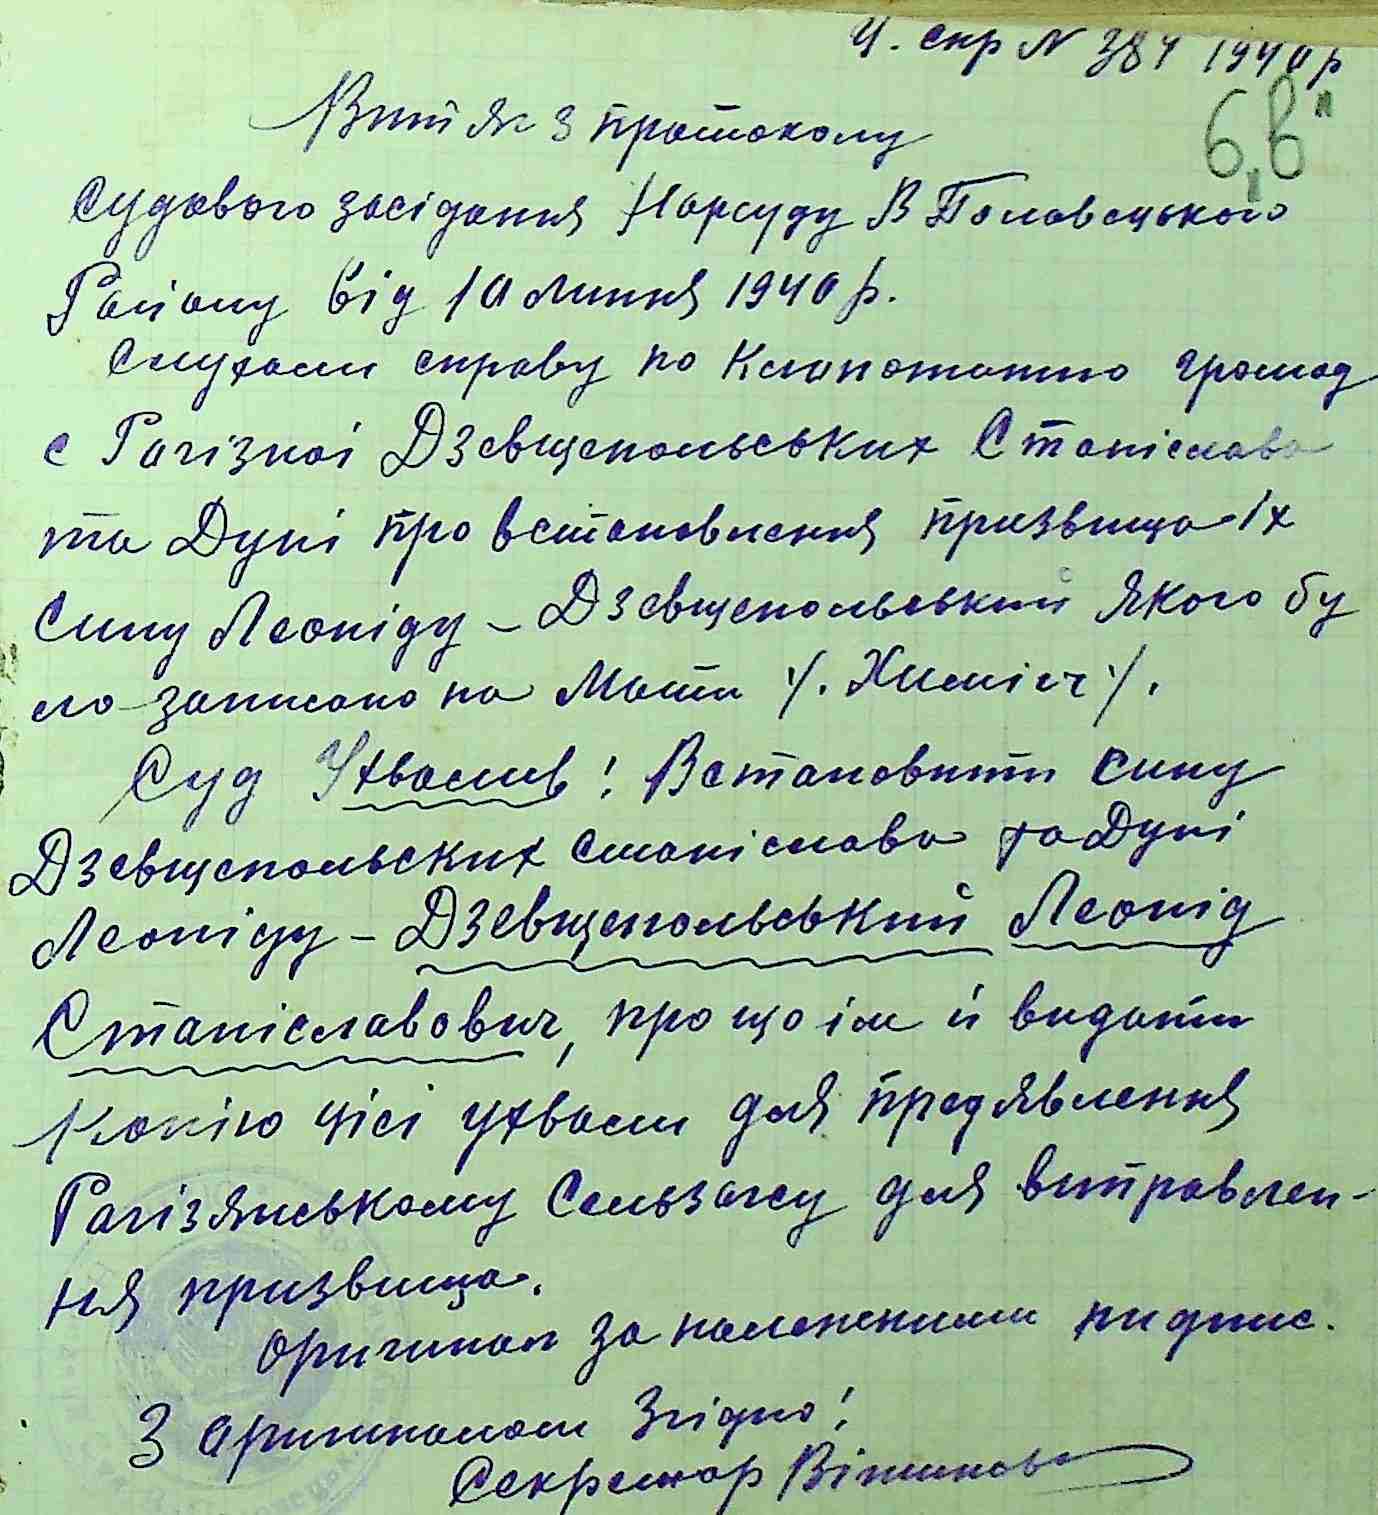 Ц. спр N 384 1940 р
6 „в"
Витяг з протоколу
Судового засідання Нарсуду В Половецького
Району від 10 липня 1940 р.
Слухали справу по клопотанню громад
с Рогізної Дзевщепольських Станіслава
та Дуні про встановлення призвища їх
сину Леоніду – Дзевщепольський якого бу
ло записано на мати /. Химіч /.
Суд Ухвалив! Встановити сину
Дзевщепольских Станіслава та Дуні
Леоніду – Дзевщепольський Леонід
Станіславович, про що їм й видати
копію цієї ухвали для предявлення
Рогізянському Сельзагсу для виправлен-
ня призвища.
Оригинал за належними пидпис.
З оригиналом Згідно!
Секретар